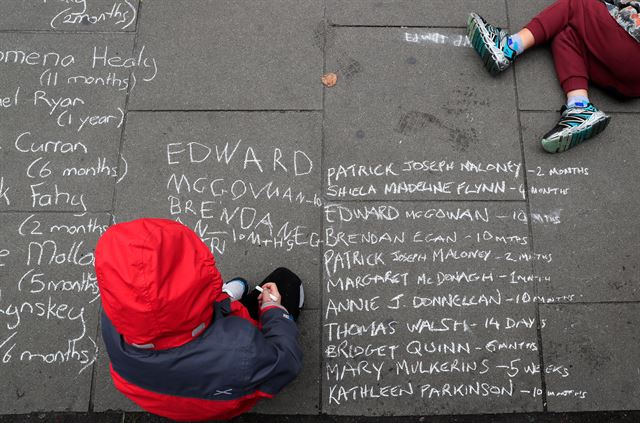 (2 months)
omena Healy
(11 months)
el Ryan
(1 year)
Curran
(6 months)
k Fahy
(2 months)
e Mollo
(5 months)
ynskey
(6 months)
EDWARD
MCGOWAN-10
BRENDAN
EDWARD
PATRICK JOSEPH MALONEY - 2 MONTHS
SHIELA MADELINE FLYNN - 4 MONTHS
EDWARD MCGOWAN - 10 MNTHS
BRENDAN EGAN - 10 MNTHS
PATRICK JOSEPH MALONEY - 2 MNTHS
MARGARET MCDONAGH - 1 MNTH
ANNIE J DONNELLAN - 10 MNTHS
THOMAS WALSH - 14 DAYS
BRIDGET QUINN - 6 MNTHS
MARY MULKERINS - 5 WEEKS
KATHLEEN PARKINSON - 10 MONTHS